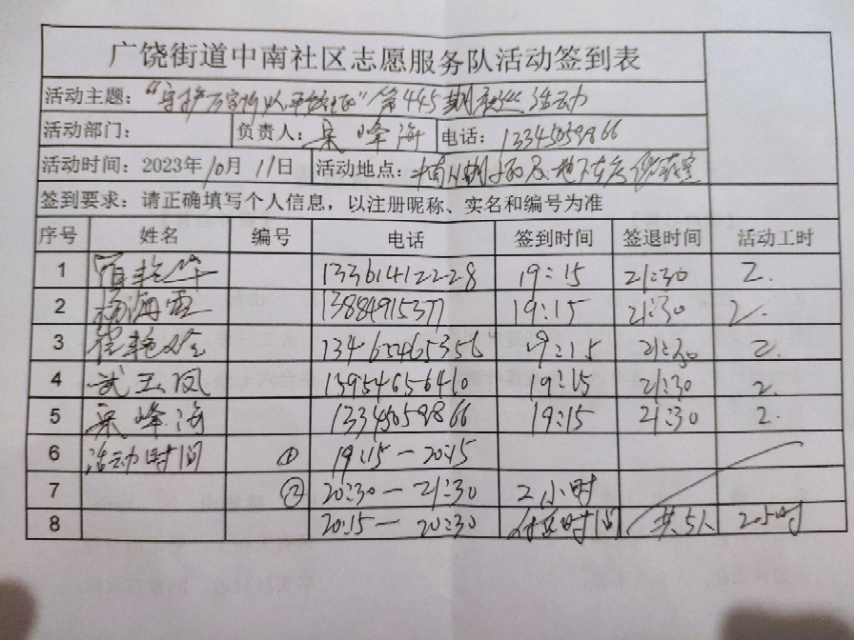 广饶街道中南社区志愿服务队活动签到表
活动主题：“守护万家 平安 ”第445期夜巡活动
活动部门： 负责人： 峰海 电话：13345059866
活动时间：2023年10月11日 活动地点：中南 地下车库
签到要求：请正确填写个人信息，以注册昵称、实名和编号为准
序号 姓名 编号 电话 签到时间 签退时间 活动工时
1 艳华 13361412228 19:15 21:30 2.
2 杨海霞 13884915377 19:15 21:30 2.
3 崔艳玲 13465465356 19:15 21:30 2.
4 武玉凤 13954656410 19:15 21:30 2.
5 峰海 13345059866 19:15 21:30 2.
6 活动时间 ① 19:15—20:15
7 ② 20:30—21:30 2小时
8 20:15—20:30 休息时间 共5人